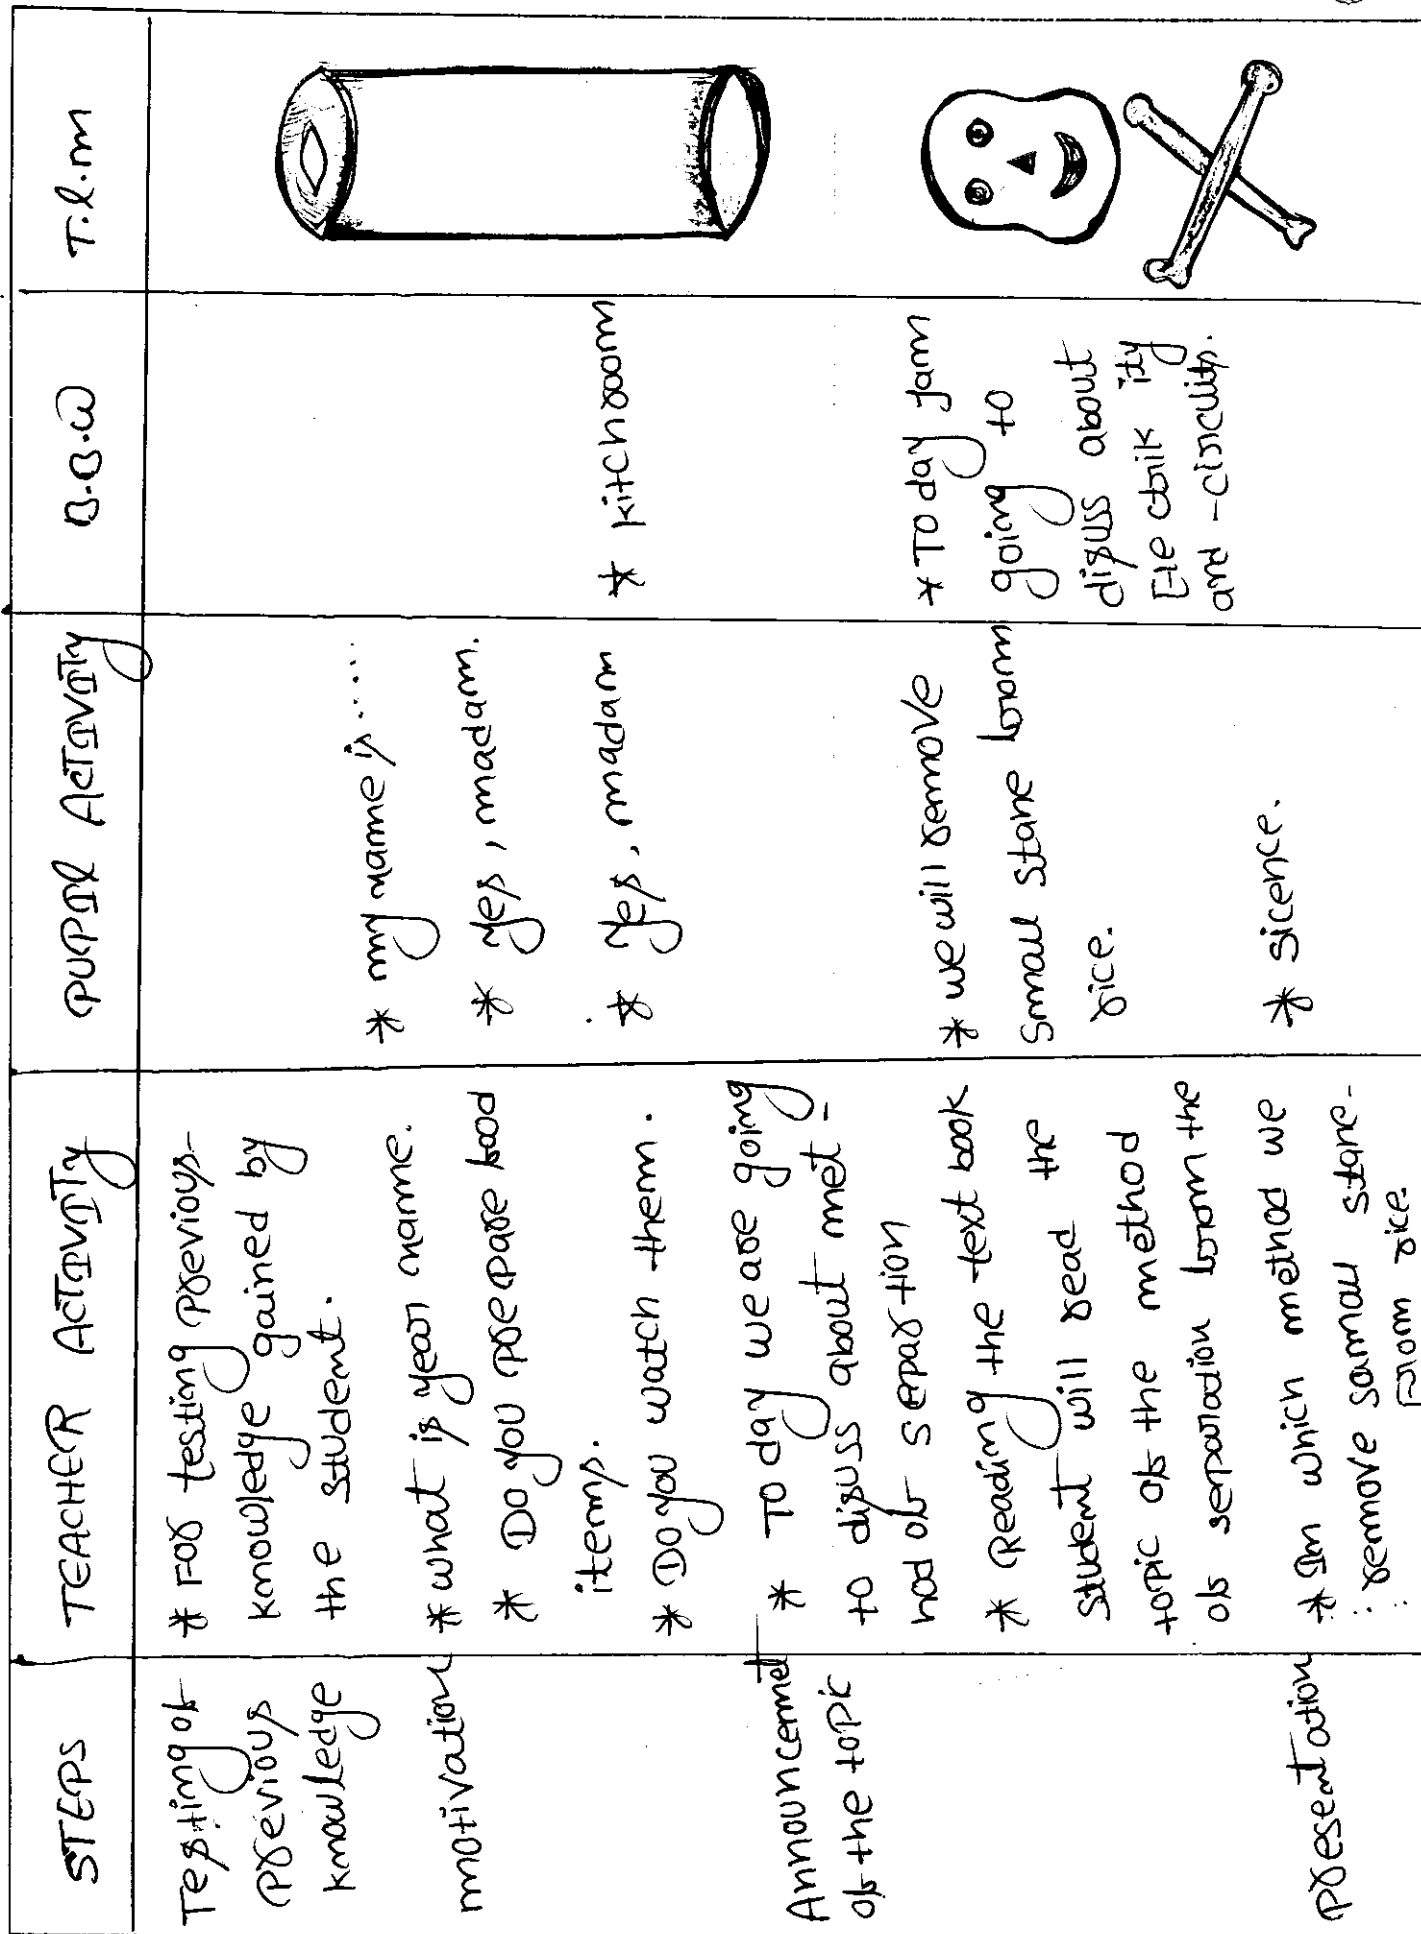 STEPS
TEACHER ACTIVITY
PUPIL ACTIVITY
B.B.W
T.L.M
Testing of
previous
knowledge
* For testing previous-
knowledge gained by
the student.
motivation
* what is year name.
* my name is.....
* Do you prepare food
items.
* yes, madam.
* Do you watch them.
* yes, madam
* kitchroom
Announcemet
of the topic
* To day we are going
to disuss about met-
hod of separtion
* Reading the text book
student will read the
topic of the method
of separadion from the
* we will remove
small stane from
rice.
* To day Jam
going to
disuss about
Ele ctrik ity
and -circuits.
presentation
* In which method we
remove samall stane-
From rice.
* sicence.